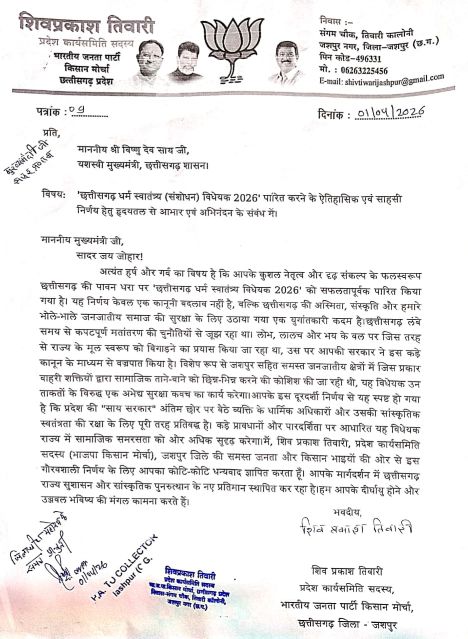 शिवप्रकाश तिवारी
प्रदेश कार्यसमिति सदस्य
भारतीय जनता पार्टी
किसान मोर्चा
छत्तीसगढ़ प्रदेश
निवास :-
संगम चौक, तिवारी कालोनी
जशपुर नगर, जिला-जशपुर (छ.ग.)
पिन कोड-496331
मो. : 06263225456
E-mail: shivtiwarijashpur@gmail.com
पत्रांक : 09
दिनांक : 01/04/2026
प्रति,
माननीय श्री विष्णु देव साय जी,
यशस्वी मुख्यमंत्री, छत्तीसगढ़ शासन।
विषय: 'छत्तीसगढ़ धर्म स्वातंत्र्य (संशोधन) विधेयक 2026' पारित करने के ऐतिहासिक एवं साहसी
निर्णय हेतु हृदयतल से आभार एवं अभिनंदन के संबंध में।
माननीय मुख्यमंत्री जी,
सादर जय जोहार!
अत्यंत हर्ष और गर्व का विषय है कि आपके कुशल नेतृत्व और दृढ़ संकल्प के फलस्वरूप
छत्तीसगढ़ की पावन धरा पर 'छत्तीसगढ़ धर्म स्वातंत्र्य विधेयक 2026' को सफलतापूर्वक पारित किया
गया है। यह निर्णय केवल एक कानूनी बदलाव नहीं है, बल्कि छत्तीसगढ़ की अस्मिता, संस्कृति और हमारे
भोले-भाले जनजातीय समाज की सुरक्षा के लिए उठाया गया एक युगांतकारी कदम है।छत्तीसगढ़ लंबे
समय से कपटपूर्ण मतांतरण की चुनौतियों से जूझ रहा था। लोभ, लालच और भय के बल पर जिस तरह
से राज्य के मूल स्वरूप को बिगाड़ने का प्रयास किया जा रहा था, उस पर आपकी सरकार ने इस कड़े
कानून के माध्यम से वज्रपात किया है। विशेष रूप से जशपुर सहित समस्त जनजातीय क्षेत्रों में जिस प्रकार
बाहरी शक्तियों द्वारा सामाजिक ताने-बाने को छिन्न-भिन्न करने की कोशिश की जा रही थी, यह विधेयक उन
ताकतों के विरुद्ध एक अभेद्य सुरक्षा कवच का कार्य करेगा।आपके इस दूरदर्शी निर्णय से यह स्पष्ट हो गया
है कि प्रदेश की "साय सरकार" अंतिम छोर पर बैठे व्यक्ति के धार्मिक अधिकारों और उसकी सांस्कृतिक
स्वतंत्रता की रक्षा के लिए पूरी तरह प्रतिबद्ध है। कड़े प्रावधानों और पारदर्शिता पर आधारित यह विधेयक
राज्य में सामाजिक समरसता को ओर अधिक सुदृढ़ करेगा।मैं, शिव प्रकाश तिवारी, प्रदेश कार्यसमिति
सदस्य (भाजपा किसान मोर्चा), जशपुर जिले की समस्त जनता और किसान भाइयों की ओर से इस
गौरवशाली निर्णय के लिए आपका कोटि-कोटि धन्यवाद ज्ञापित करता हूँ। आपके मार्गदर्शन में छत्तीसगढ़
राज्य सुशासन और सांस्कृतिक पुनरुत्थान के नए प्रतिमान स्थापित कर रहा है।हम आपके दीर्घायु होने और
उज्जवल भविष्य की मंगल कामना करते हैं।
भवदीय,
शिव प्रकाश तिवारी
01/04/26
P.A. TO COLLECTOR
Jashpur (C.G.
शिवप्रकाश तिवारी
प्रदेश कार्यसमिति सदस्य
शिव प्रकाश तिवारी
प्रदेश कार्यसमिति सदस्य,
भारतीय जनता पार्टी किसान मोर्चा,
छत्तीसगढ़ जिला - जशपुर